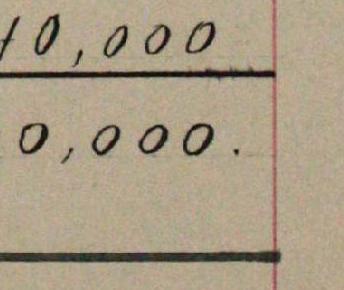 10,000
0,000.